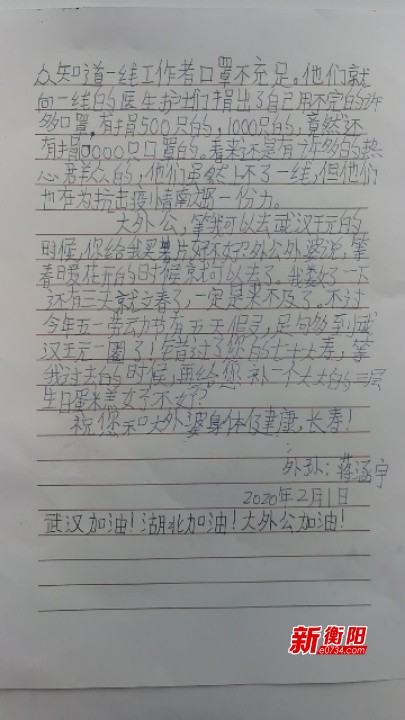 众知道一线工作者口罩不充足。他们就
向一线的医生护士们捐出了自己用不完的许
多口罩,有捐500只的,1000只的,竟然还
有捐10000只口罩的。看来还是有许多的热
心群众的,他们虽然上不了一线,但他们
也在为抗击疫情献出一份力。
大外公,等我可以去武汉玩的
时候,你给我买薯片好不好?外公外婆说,等
春日爱花开的时候就可以去了。我数了一下
还有三天就立春了,一定是来不及了。不过
今年五一劳动节有五天假呢,足够够到武
汉玩一圈了!错过了您的七十大寿,等
我过去的时候,再给您补一个大大的三层
生日蛋糕好不好?
祝您和大外婆身体健康,长寿!
外孙:蒋涵宇
2020年2月1日
武汉加油!湖北加油!大外公加油!
新衡阳
e0734.com